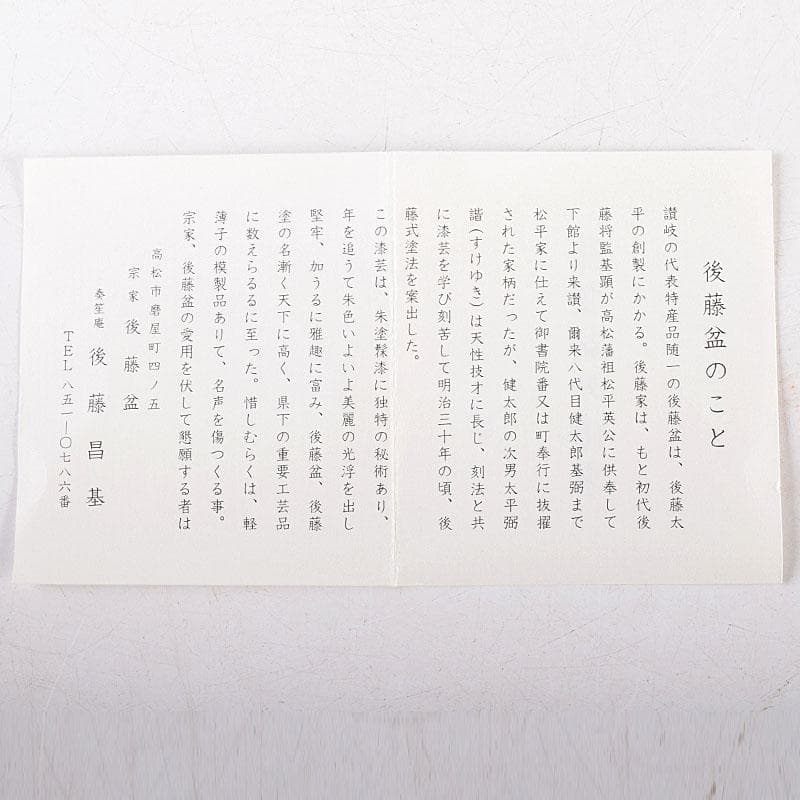 後藤盆のこと
讃岐の代表特産品随一の後藤盆は、後藤太
平の創製にかかる。後藤家は、もと初代後
藤将監基顕が高松藩祖松平英公に供奉して
下館より来讃、爾来八代目健太郎基弼まで
松平家に仕えて御書院番又は町奉行に抜擢
された家柄だったが、健太郎の次男太平弼
諧(すけゆき)は天性技才に長じ、刻法と共
に漆芸を学び刻苦して明治三十年の頃、後
藤式塗法を案出した。
この漆芸は、朱塗髹漆に独特の秘術あり、
年を追うて朱色いよいよ美麗の光浮を出し
堅牢、加うるに雅趣に富み、後藤盆、後藤
塗の名漸く天下に高く、県下の重要工芸品
に数えらるるに至った。惜しむらくは、軽
薄子の模製品ありて、名声を傷つくる事。
宗家、後藤盆の愛用を伏して懇願する者は
高松市磨屋町四ノ五
宗家 後藤盆
奏笙庵 後藤昌基
TEL 八五一―〇七八六番